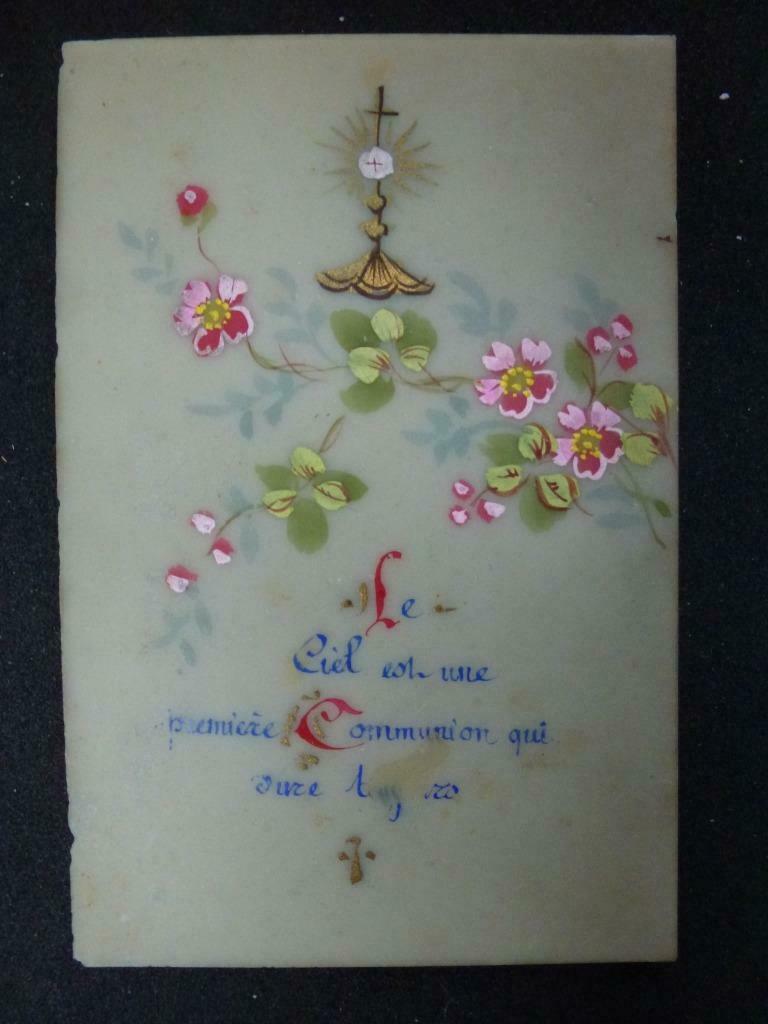 Le
Ciel est une
première Communion qui
dure